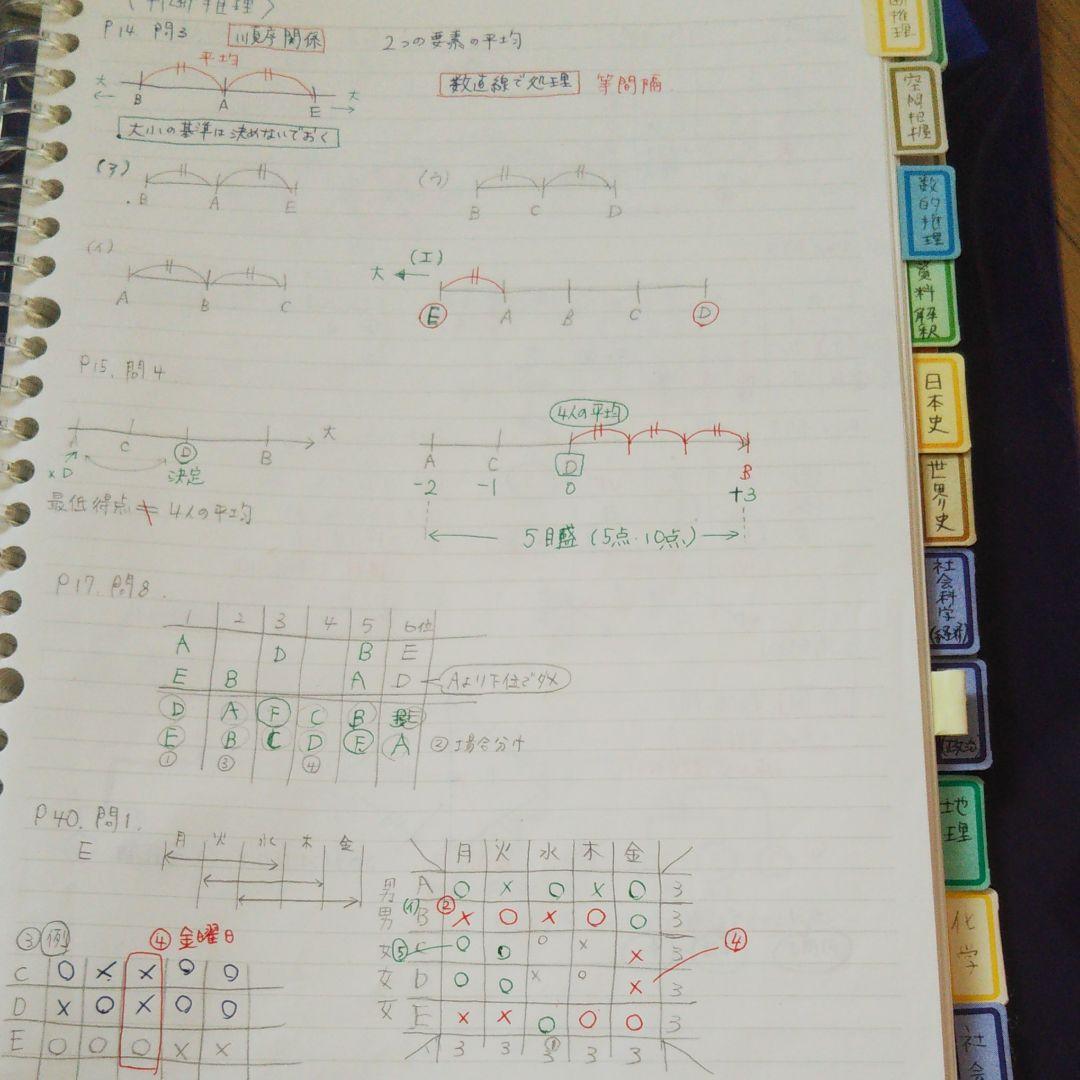 〈判断推理〉
P14. 問3 順序関係 2つの要素の平均
平均
大 B A E 大
数直線で処理 等間隔
大小の基準は決めないでおく
(ア) B A E
(ウ) B C D
(イ) A B C
大 (エ) E A B C D
P15. 問4
A C D B 大
×D 決定
最低得点 ≠ 4人の平均
4人の平均
A C D B
-2 -1 0 +3
5目盛(5点・10点)
P17. 問8.
1 2 3 4 5 6位
A D B E
E B A D Aより下位でダメ
D A F C B E
E B C D E A ②場合分け
① ③ ④
P40. 問1.
E 月 火 水 木 金
③例 ④金曜日
C ○ × × ○ ○
D × ○ × ○ ○
E ○ ○ ○ × ×
月 火 水 木 金
男 A ○ × ○ × ○ 3
男 (イ) B ② × ○ × ○ ○ 3
女 ⑤ C ○ ○ ○ × × 3 ④
女 D ○ ○ × ○ × 3
女 E × × ○ ○ ○ 3
3 3 3 ① 3 3
判断推理
空間把握
数的推理
資料解釈
日本史
世界史
社会科学
(経済)
(政治)
地理
化学
社会